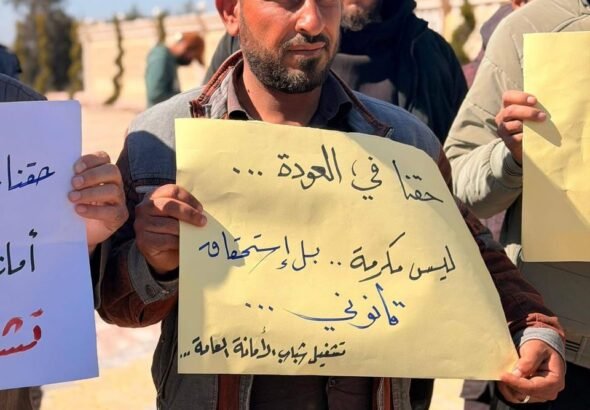 حقنا في العودة ...
ليس مكرمة .. بل إستحقاق
قانوني ...
تشغيل شباب الأمانة العامة ...
حقنا